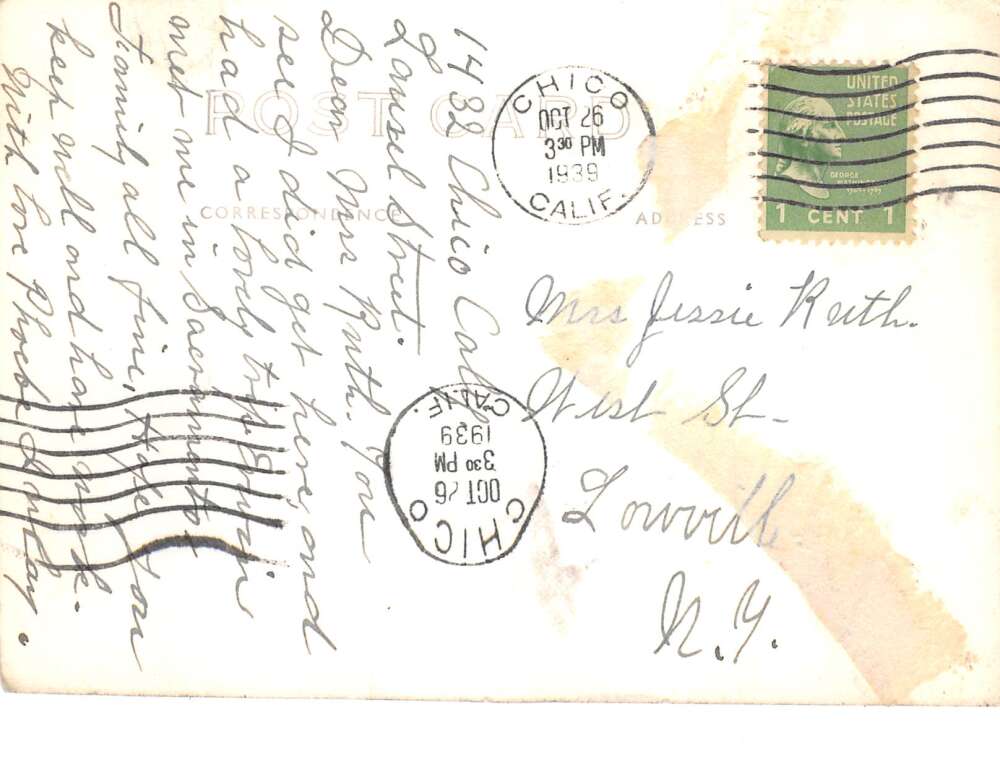 POST CARD
CORRESPONDENCE
ADDRESS
CHICO
OCT 26
3 30 PM
1939
CALIF.
UNITED
STATES
POSTAGE
GEORGE
WASHINGTON
1 CENT 1
1432 Chico Cal
Laurel Street.
Dear Mrs Ruth. You
see I did get here, and
had a lovely trip Erwin
met me in Sacrmento
Family all fine, Hope you
keep well and have work.
With love Phoebe
Mrs Jessie Ruth.
West St-
Lowvill
N.Y.
CHICO
OCT 26
3 30 PM
1939
CALIF.